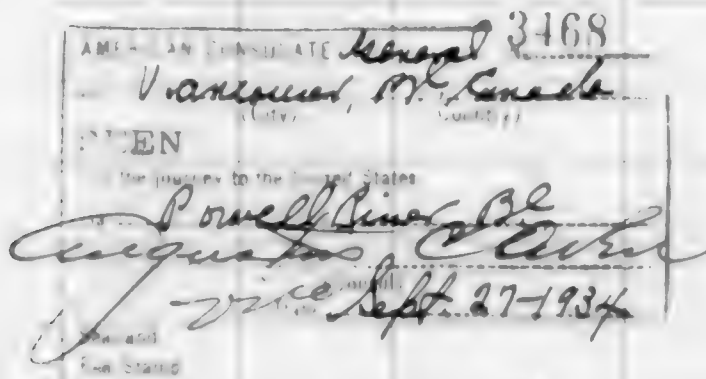 AMERICAN CONSULATE General 3468
Vancouver, BC, Canada
(City) (Country)
SEEN
the journey to the United States
Powell River, BC
Augustus
Vice Consul
Sept. 27-1934
Seal and
Fee Stamp